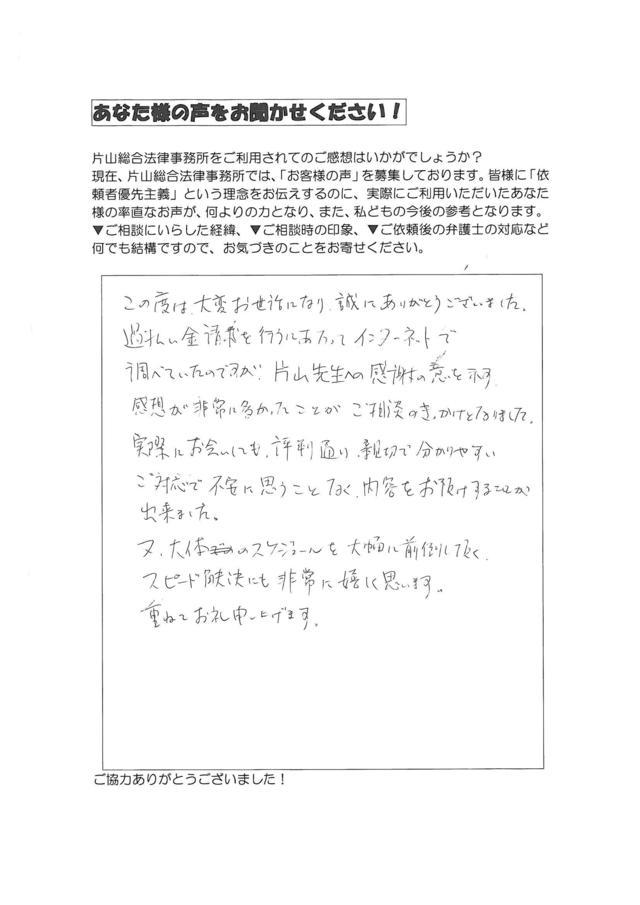 あなた様の声をお聞かせください！
片山総合法律事務所をご利用されてのご感想はいかがでしょうか？
現在、片山総合法律事務所では、「お客様の声」を募集しております。皆様に「依
頼者優先主義」という理念をお伝えするのに、実際にご利用いただいたあなた
様の率直なお声が、何よりの力となり、また、私どもの今後の参考となります。
▼ご相談にいらした経緯、▼ご相談時の印象、▼ご依頼後の弁護士の対応など
何でも結構ですので、お気づきのことをお寄せください。
この度は、大変お世話になり、誠にありがとうございました。
過払い金請求を行うにあたってインターネットで
調べていたのですが、片山先生への感謝の意を示す
感想が非常に多かったことがご相談のきっかけとなりました。
実際にお会いしても、評判通り、親切で分かりやすい
ご対応で不安に思うことなく、内容をお預けすることが
出来ました。
又、大体のスケジュールを大幅に前倒して頂く、
スピード解決にも非常に嬉しく思います。
重ねてお礼申し上げます。
ご協力ありがとうございました！